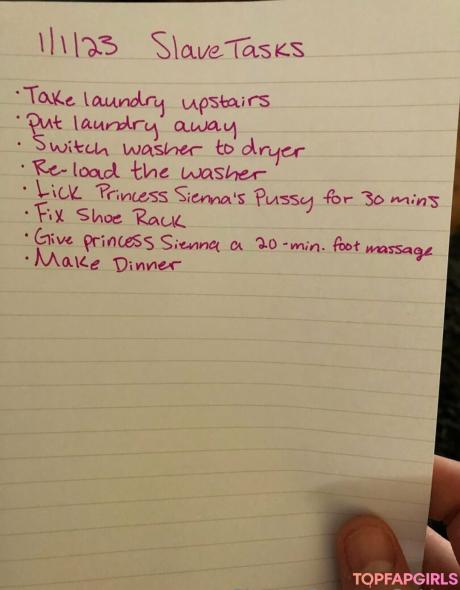 1/1/23 Slave Tasks
· Take laundry upstairs
· Put laundry away
· Switch washer to dryer
· Re-load the washer
· Lick Princess Sienna's Pussy for 30 mins
· Fix Shoe Rack
· Give princess Sienna a 20-min. foot massage
· Make Dinner
TOPFAPGIRLS